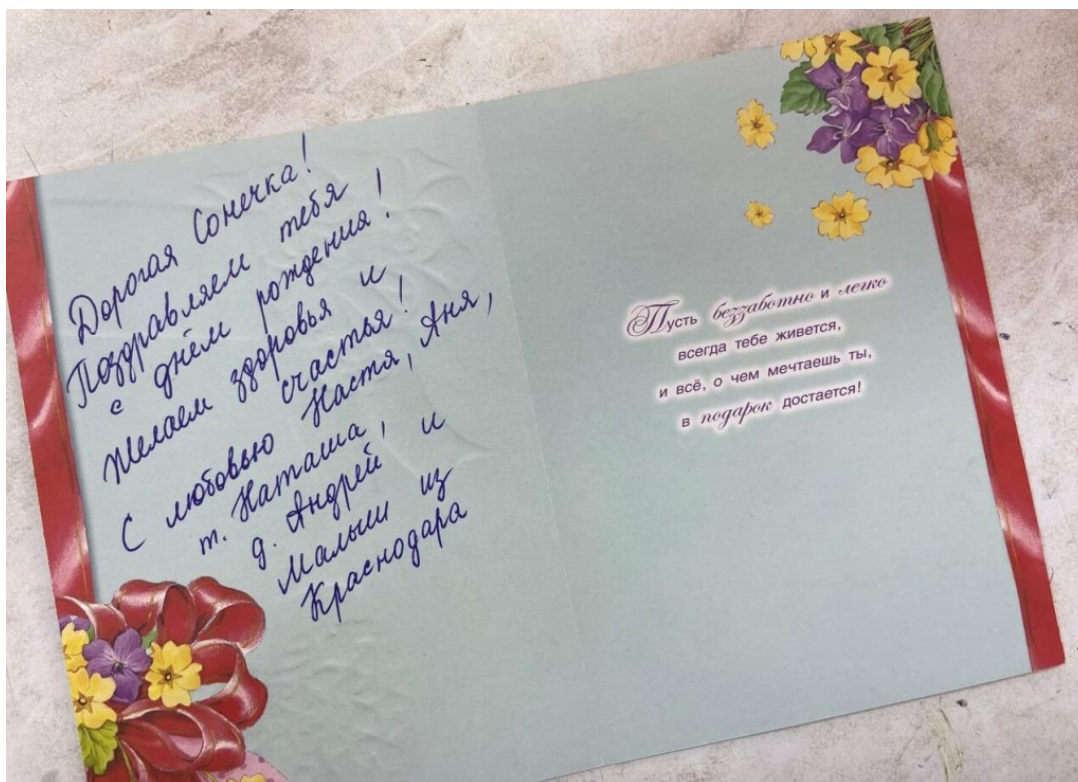 Дорогая Сонечка!
Поздравляем тебя
с днём рождения!
Желаем здоровья и
счастья!
С любовью Настя, Аня,
т. Наташа,
д. Андрей и
Малыш из
Краснодара
Пусть беззаботно и легко
всегда тебе живется,
и всё, о чем мечтаешь ты,
в подарок достается!